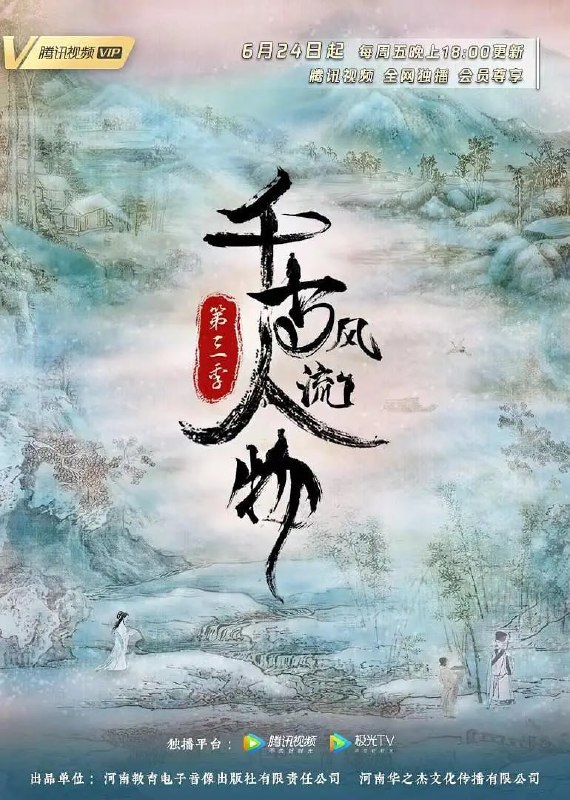 腾讯视频 VIP
6月24日起 每周五晚上18:00更新
腾讯视频 全网独播 会员尊享
千古风流人物
第三季
独播平台： 腾讯视频 极光TV
不负好时光
出品单位：河南教育电子音像出版社有限责任公司 河南华之杰文化传播有限公司